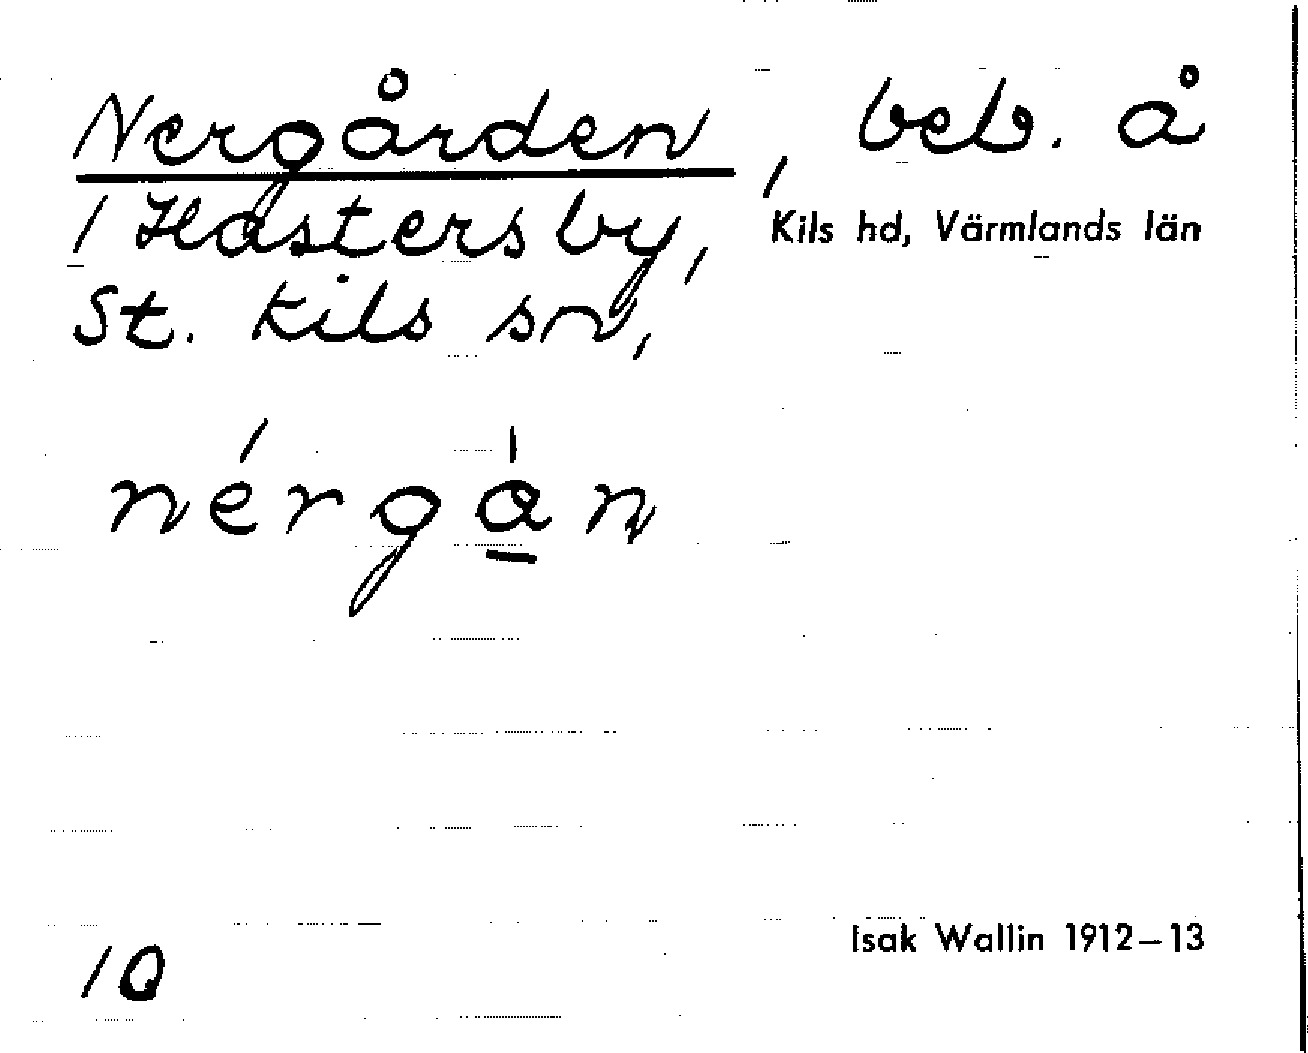 Nergården, beb. å
1 Hastersby, Kils hd, Värmlands län
St. Kils sn,
nérga̲n
10
Isak Wallin 1912–13